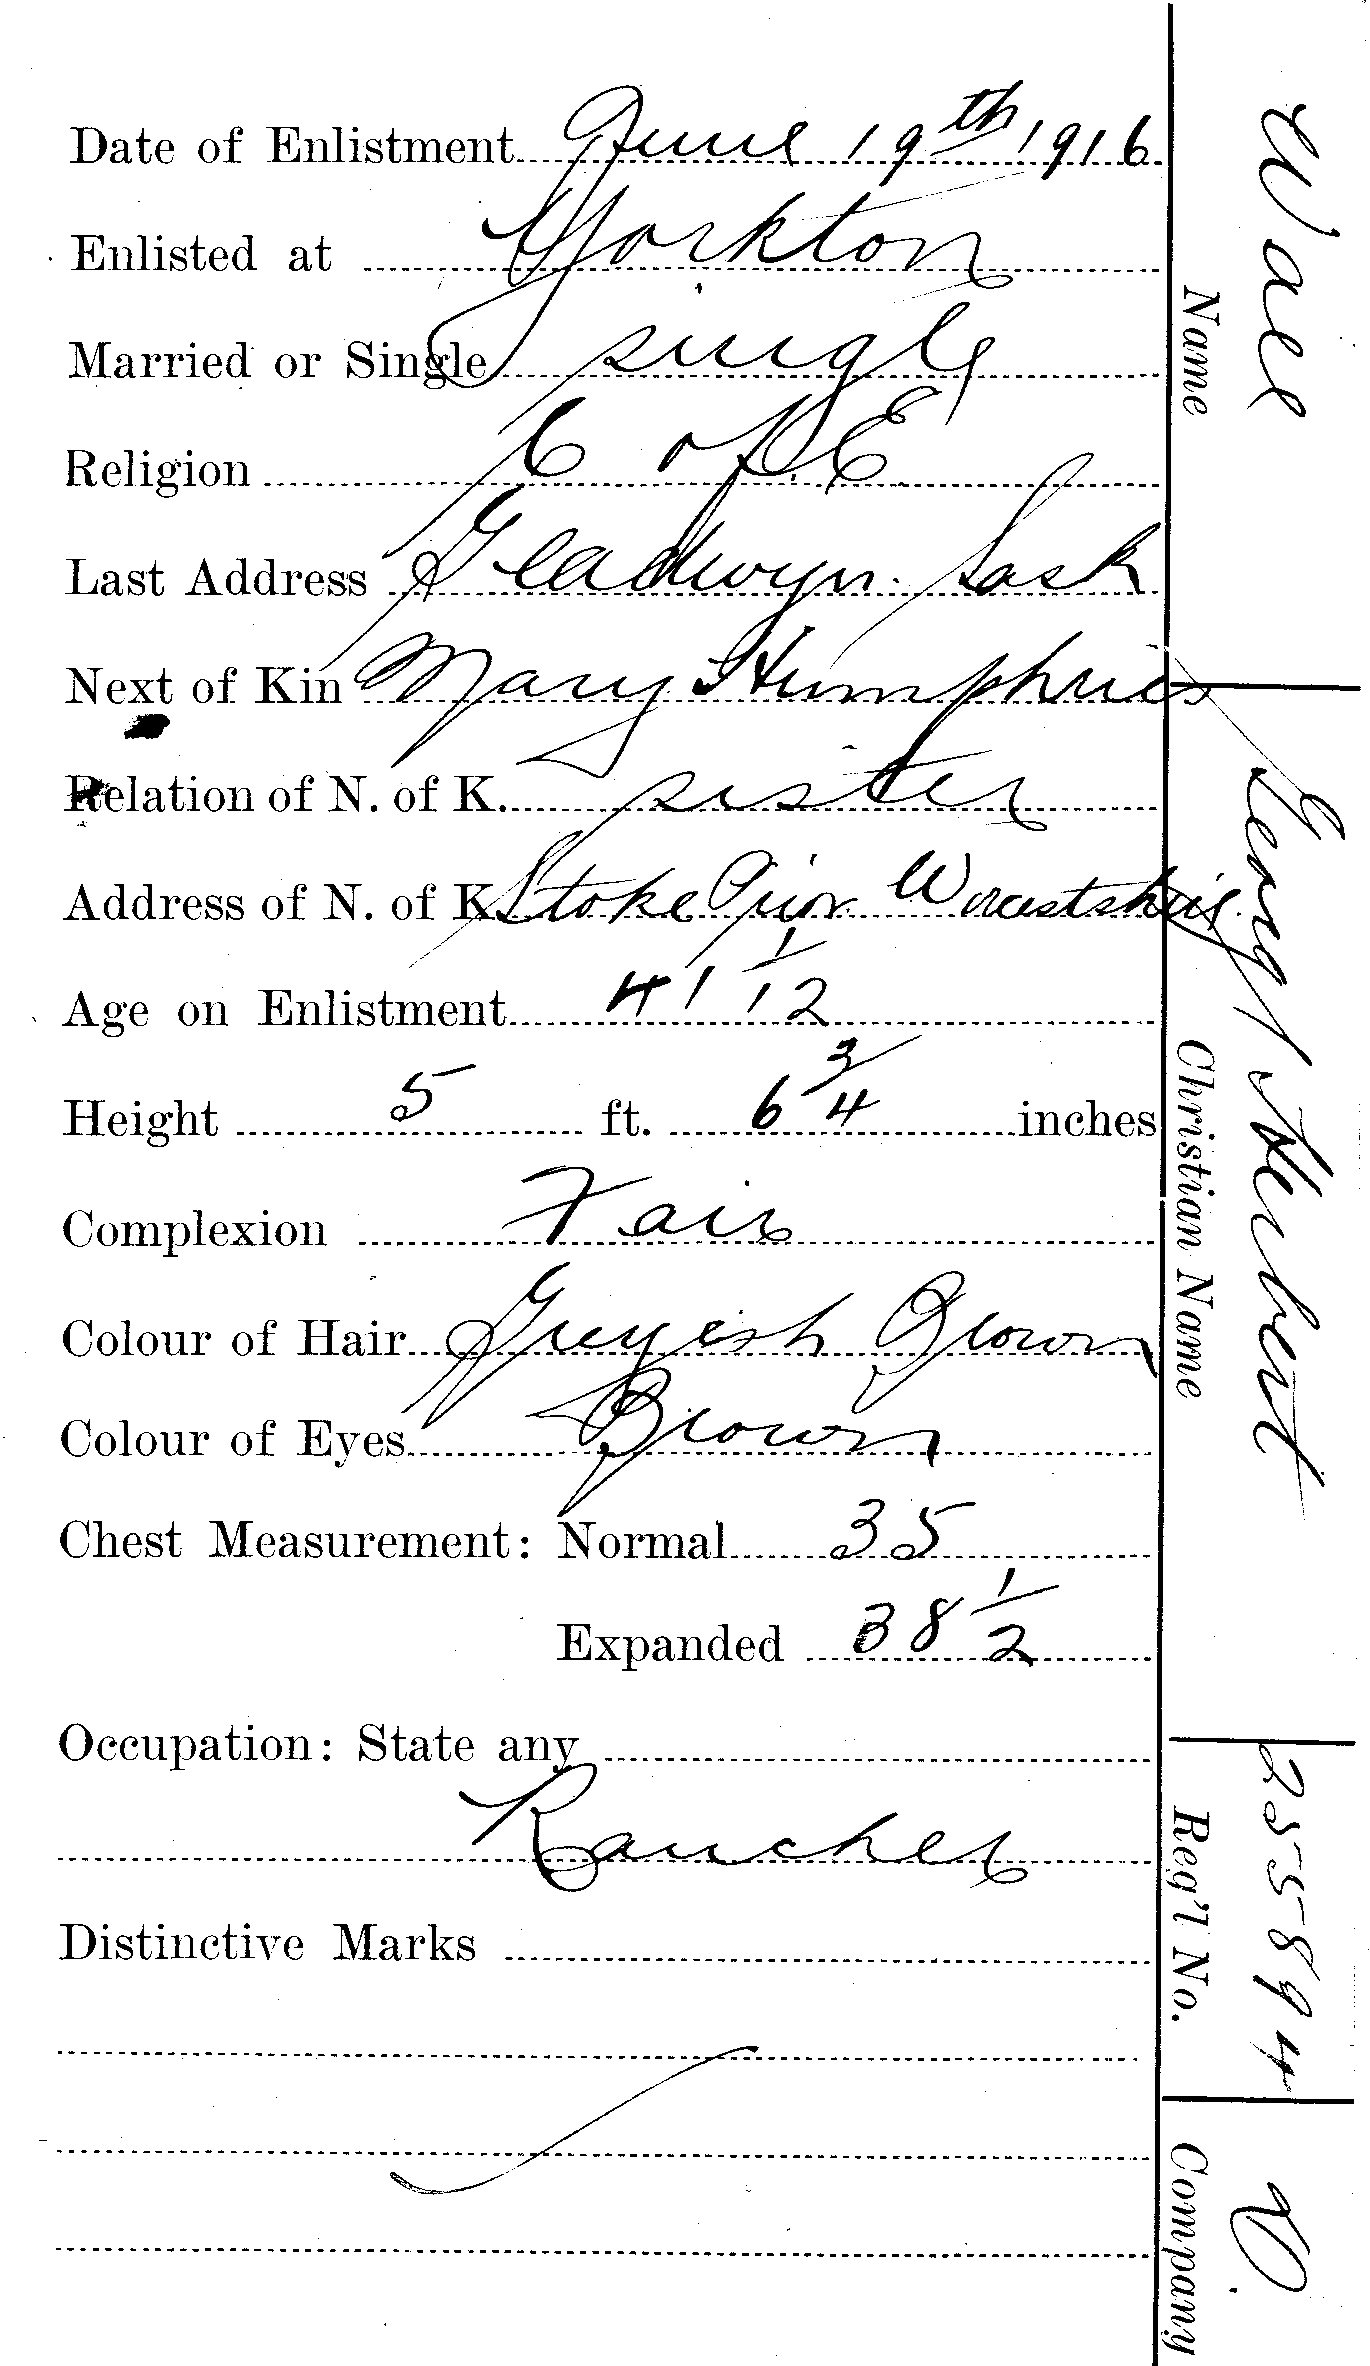 Date of Enlistment June 19th 1916
Enlisted at Yorkton
Married or Single single
Religion C of E
Last Address Gladwyn. Sask
Next of Kin Mary Humphries
Relation of N. of K. sister
Address of N. of K. Stoke Prior Worcestshire
Age on Enlistment 41 1/12
Height 5 ft. 6 3/4 inches
Complexion Fair
Colour of Hair Greyish Brown
Colour of Eyes Brown
Chest Measurement: Normal 35
Expanded 38 1/2
Occupation: State any
Rancher
Distinctive Marks
Name
Christian Name Herbert
Reg'l No. 255894
Company D.